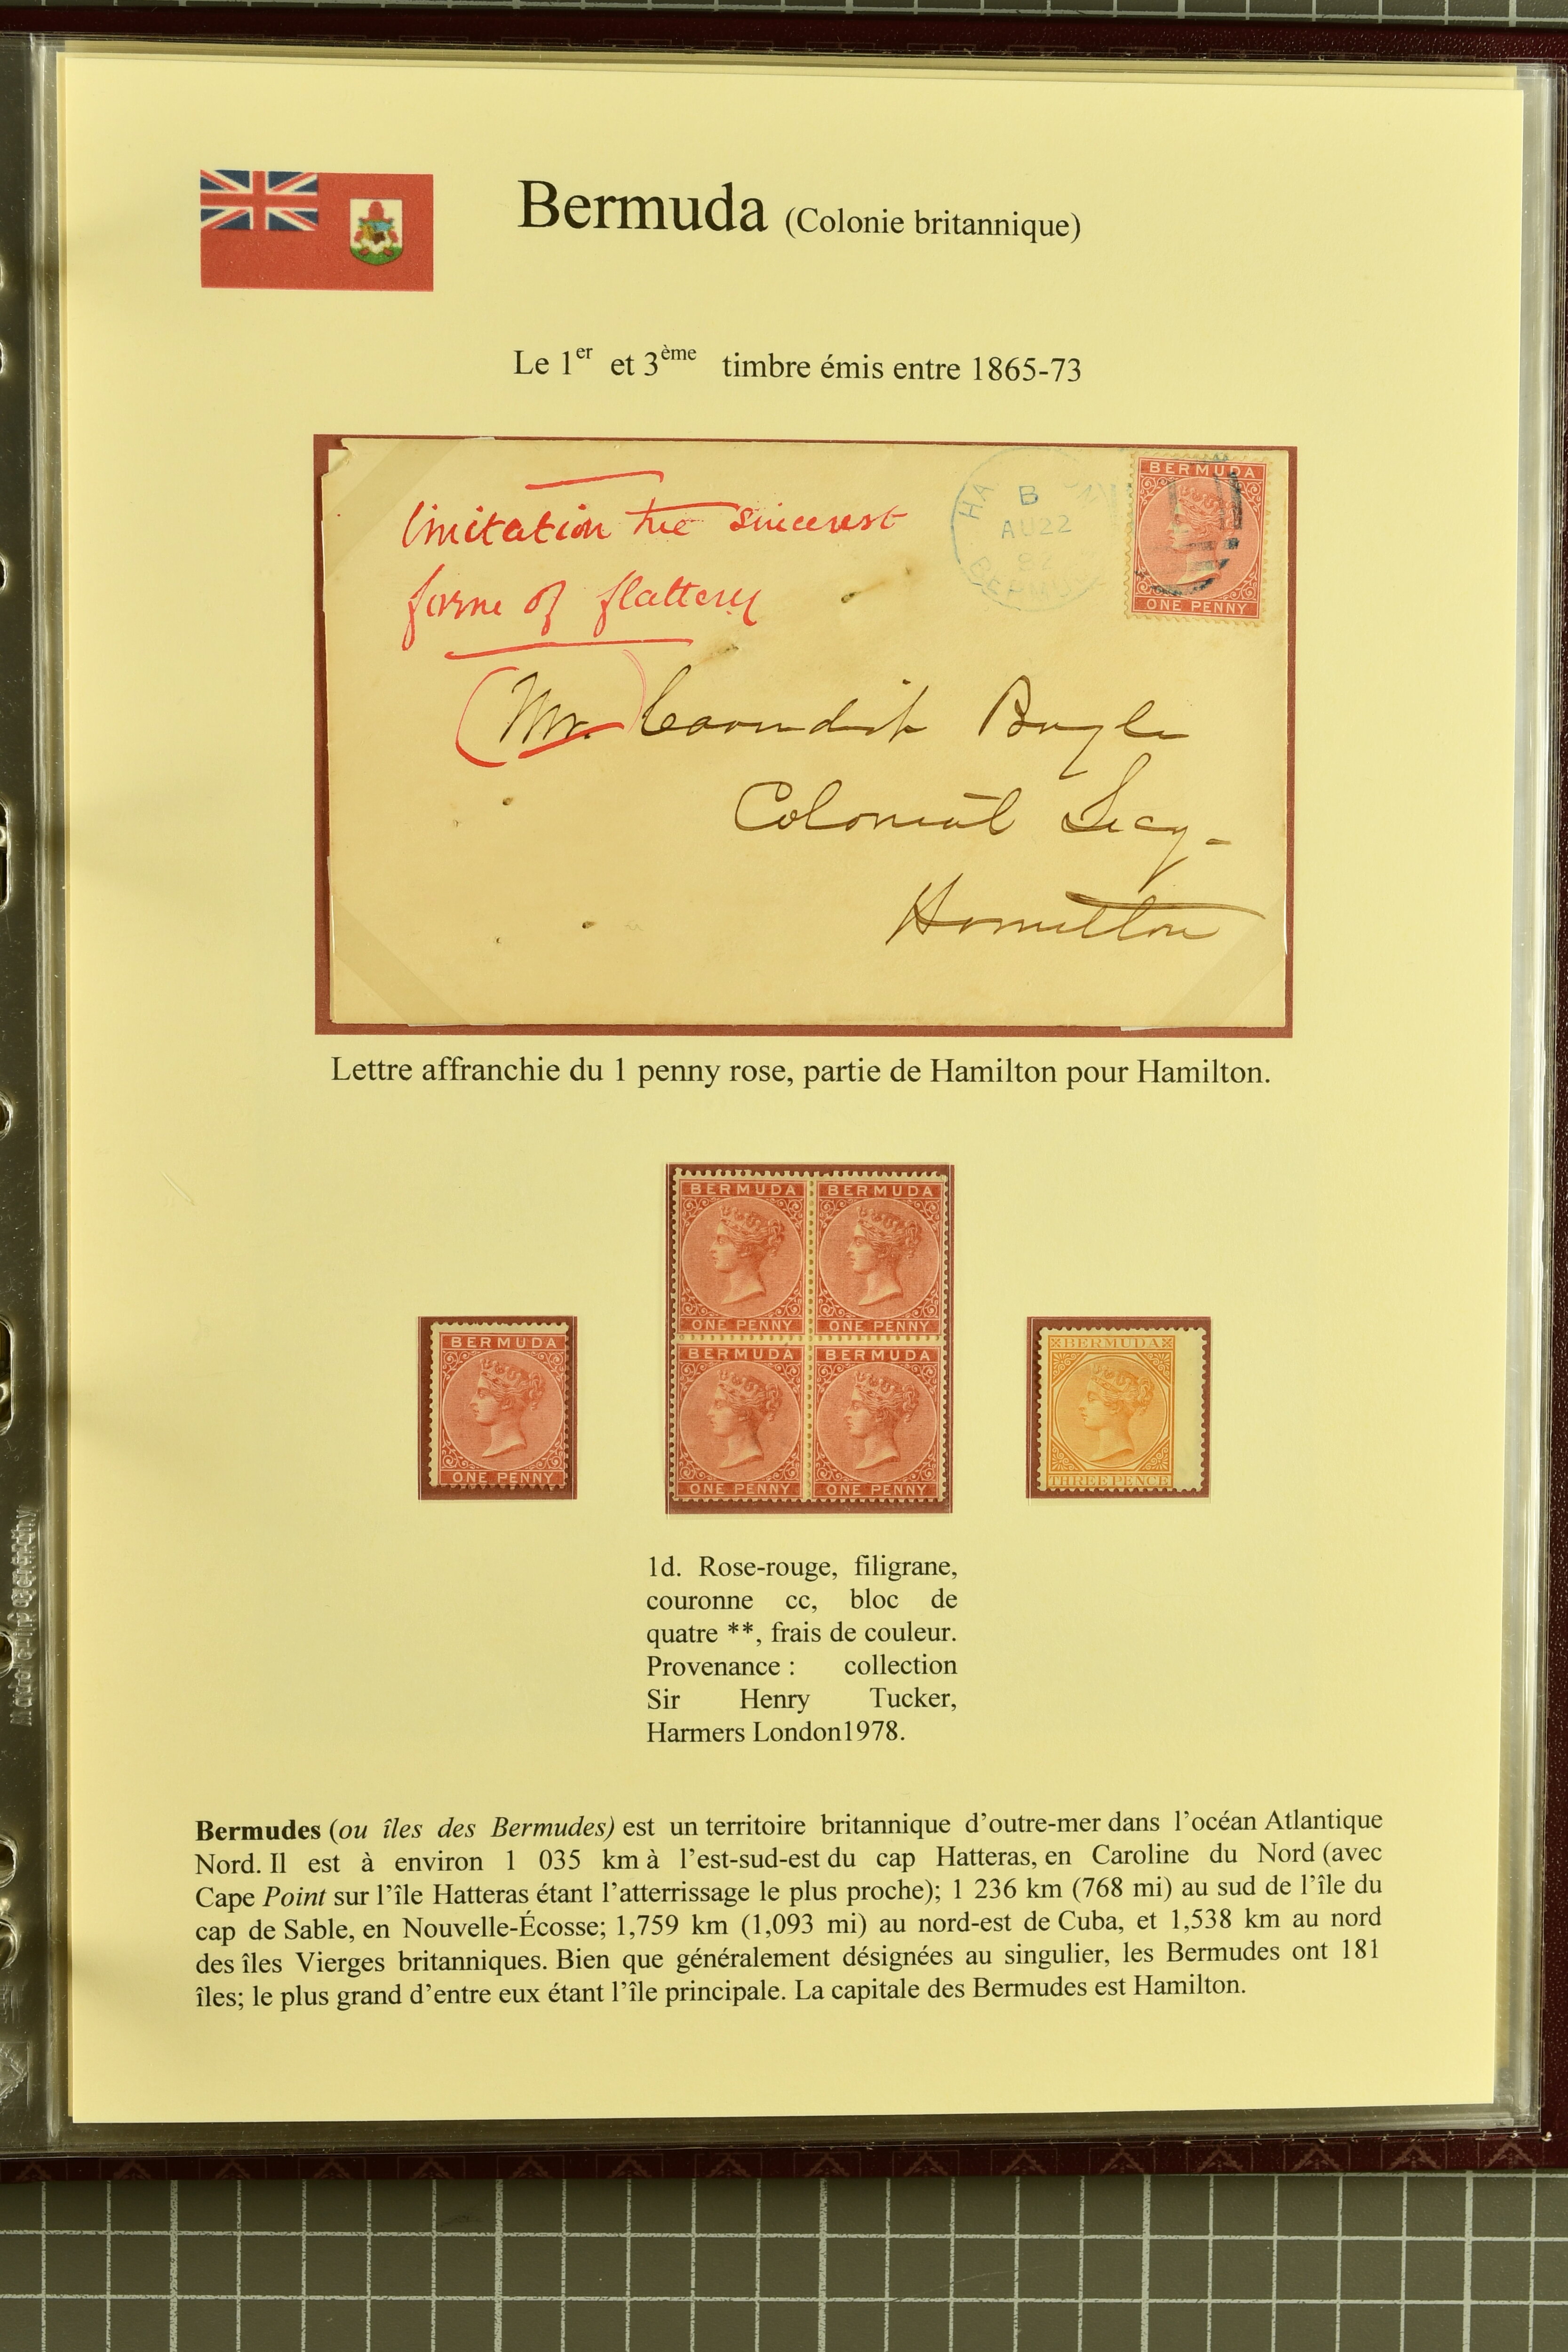 Bermuda (Colonie britannique)
Le 1er et 3ème timbre émis entre 1865-73
Imitation the sincerest
form of flattery
HA
B
AU22
82
BERMU
BERMUDA
ONE PENNY
(Mr.) Cavendish Boyle
Colonial Secy-
Hamilton
Lettre affranchie du 1 penny rose, partie de Hamilton pour Hamilton.
BERMUDA BERMUDA
ONE PENNY ONE PENNY
BERMUDA BERMUDA
ONE PENNY ONE PENNY
BERMUDA
ONE PENNY
BERMUDA
THREE PENCE
1d. Rose-rouge, filigrane,
couronne cc, bloc de
quatre **, frais de couleur.
Provenance : collection
Sir Henry Tucker,
Harmers London1978.
Bermudes (ou îles des Bermudes) est un territoire britannique d’outre-mer dans l’océan Atlantique
Nord. Il est à environ 1 035 km à l’est-sud-est du cap Hatteras, en Caroline du Nord (avec
Cape Point sur l’île Hatteras étant l’atterrissage le plus proche); 1 236 km (768 mi) au sud de l’île du
cap de Sable, en Nouvelle-Écosse; 1,759 km (1,093 mi) au nord-est de Cuba, et 1,538 km au nord
des îles Vierges britanniques. Bien que généralement désignées au singulier, les Bermudes ont 181
îles; le plus grand d’entre eux étant l’île principale. La capitale des Bermudes est Hamilton.